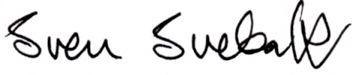 Sven Sveball